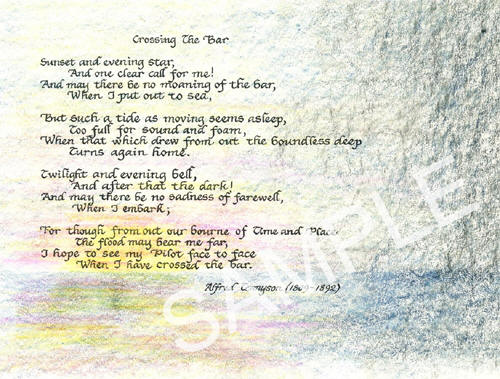 Crossing The Bar
Sunset and evening star,
And one clear call for me!
And may there be no moaning of the bar,
When I put out to sea,
But such a tide as moving seems asleep,
Too full for sound and foam,
When that which drew from out the boundless deep
Turns again home.
Twilight and evening bell,
And after that the dark!
And may there be no sadness of farewell,
When I embark;
For though from out our bourne of Time and Place
The flood may bear me far,
I hope to see my Pilot face to face
When I have crossed the bar.
Alfred Tennyson (1809-1892)
SAMPLE